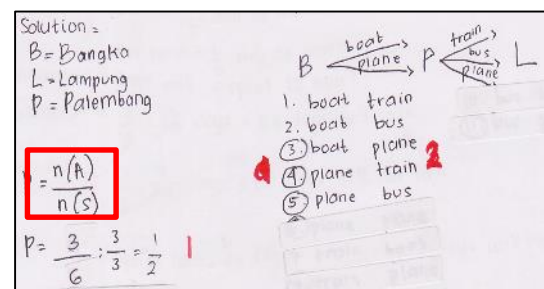 Solution =
B = Bangka
L = Lampung
P = Palembang
B boat plane P train bus plane L
1. boat train
2. boat bus
3. boat plane
4. plane train
5. plane bus
= n(A) / n(s)
P = 3/6 : 3/3 = 1/2